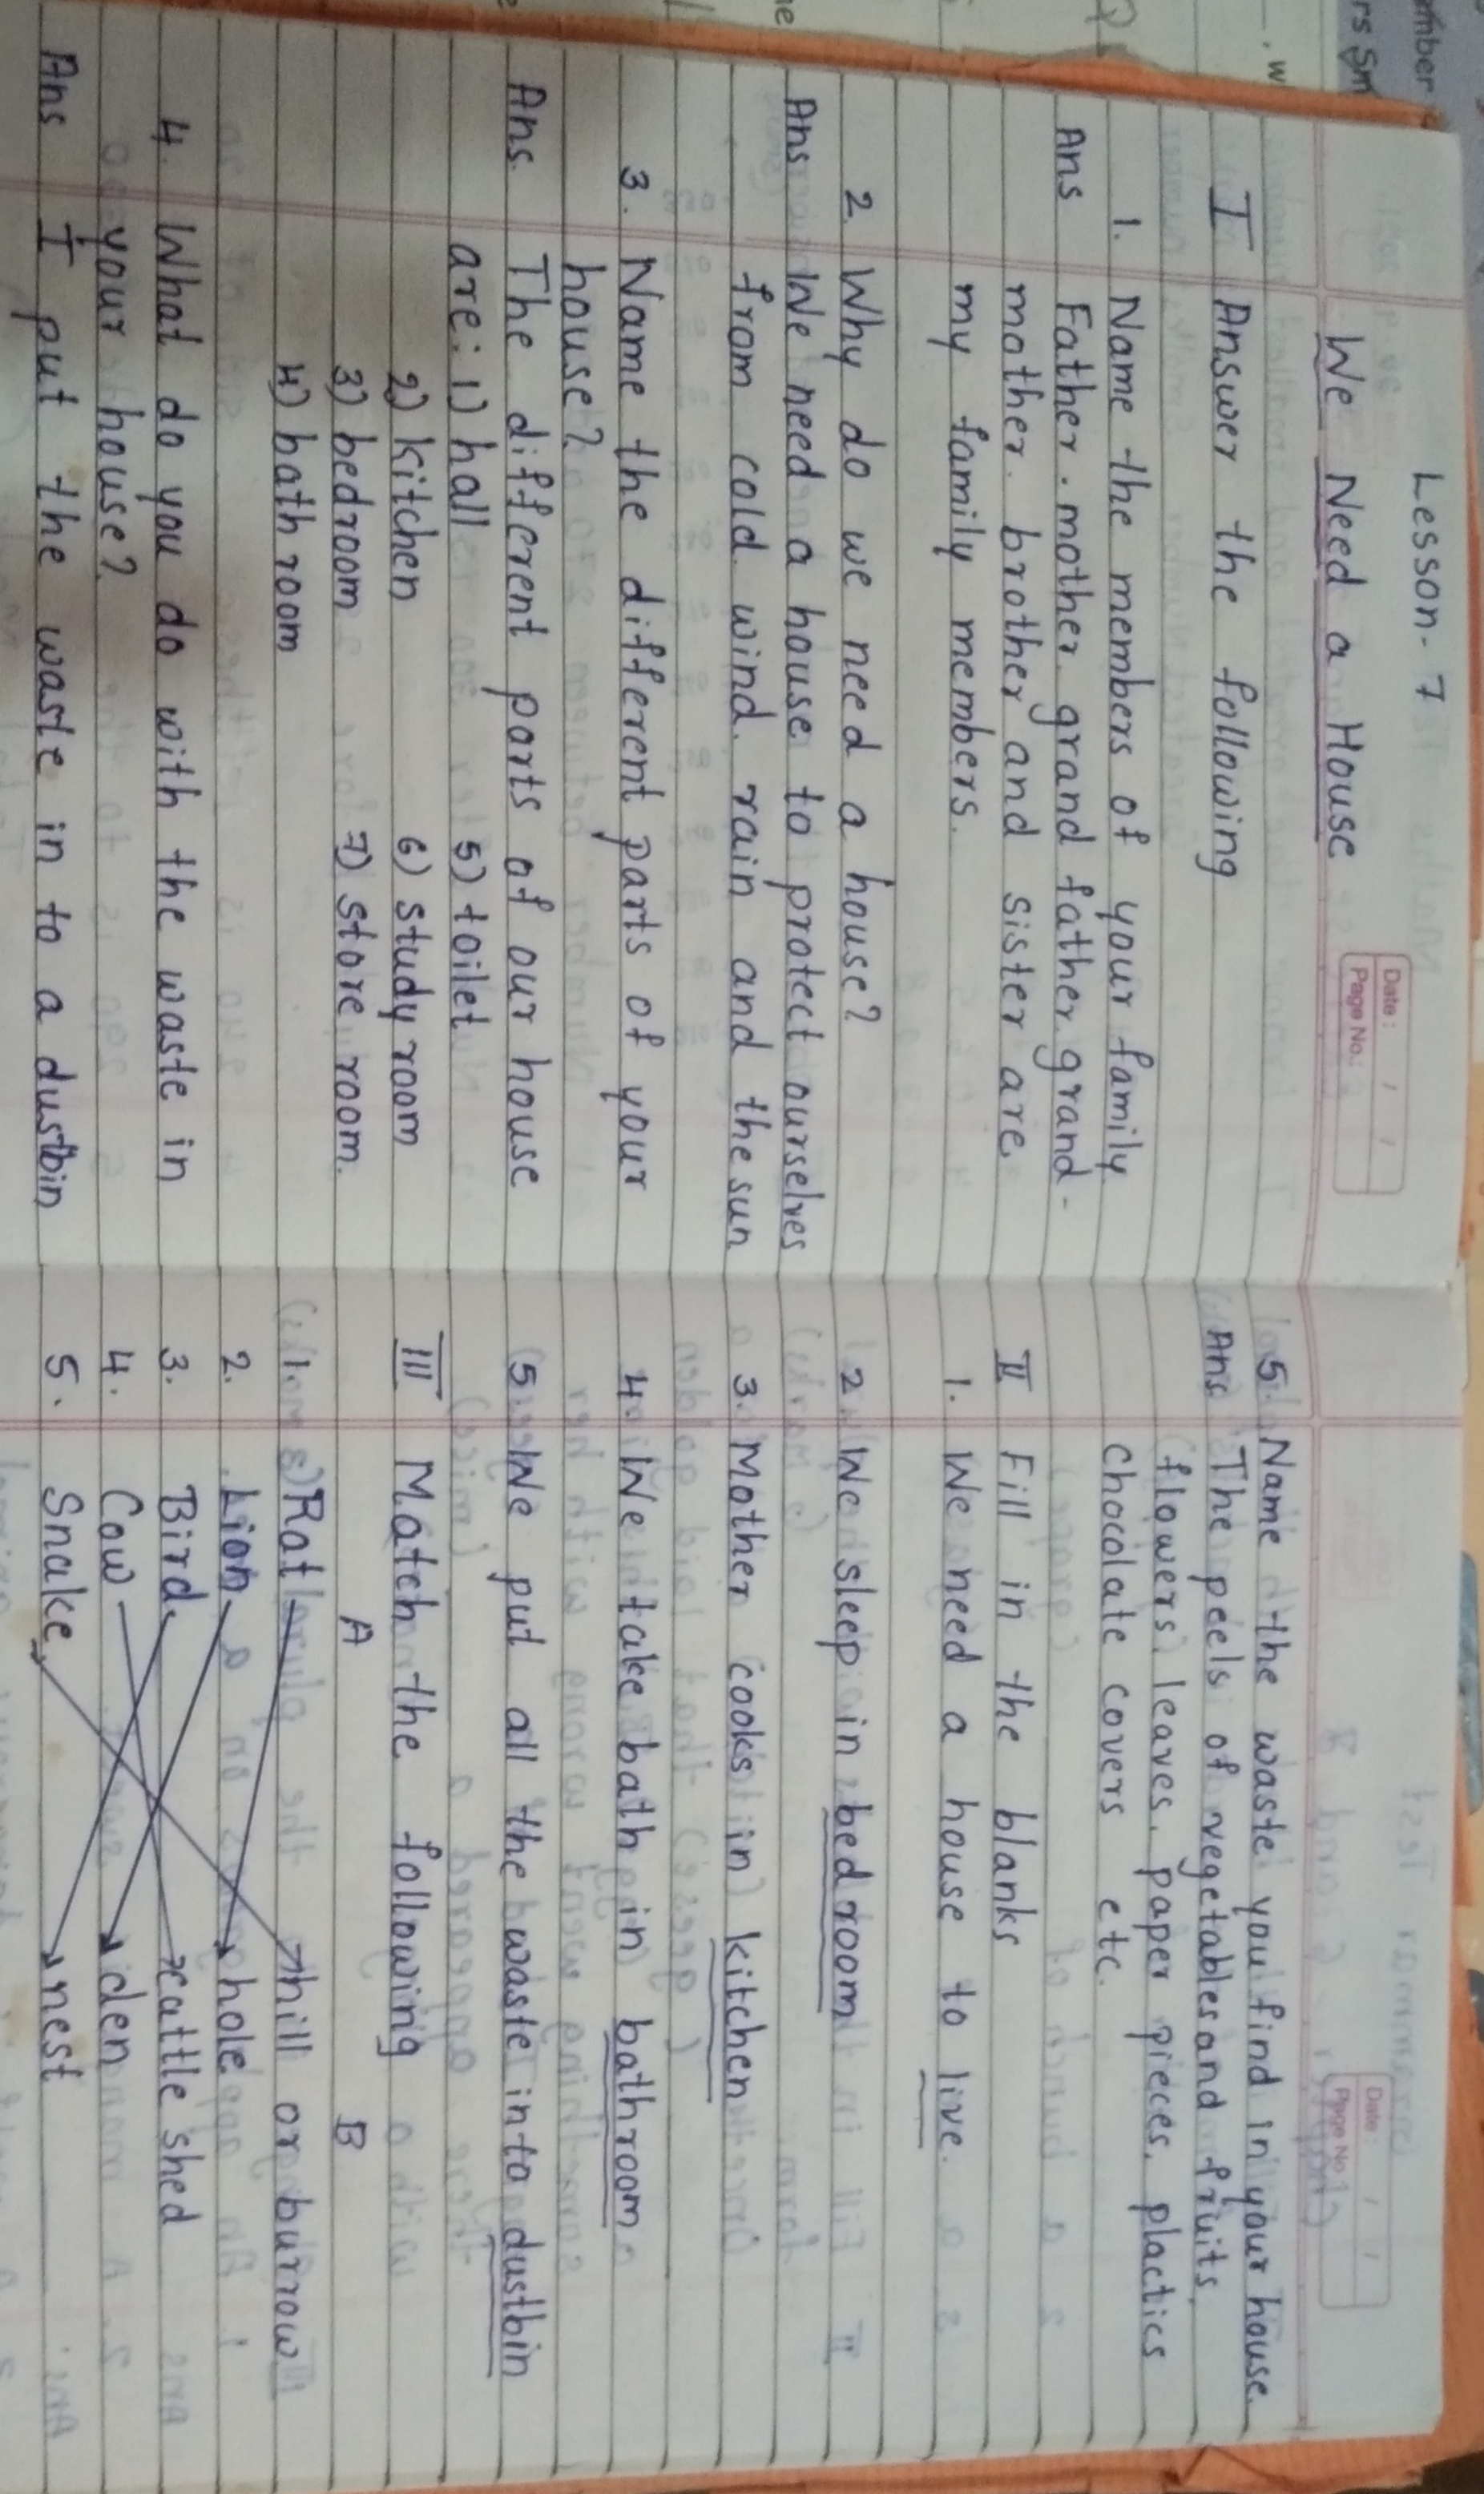 Lesson-7
Date: / /
Page No.:
We Need a House
I Answer the following
1. Name the members of your family
Ans Father. mother. grand father. grand-
mother. brother and sister are
my family members.
2. Why do we need a house?
Ans We need a house to protect ourselves
from cold. wind. rain and the sun
3. Name the different parts of your
house?
Ans. The different parts of our house
are: 1) hall 5) toilet
2) kitchen 6) study room
3) bedroom 7) store room.
4) bath room
4. What do you do with the waste in
your house?
Ans I put the waste in to a dustbin
Date: / /
Page No.
5. Name the waste you find in your house.
Ans The peels of vegetables and fruits,
flowers. leaves. paper pieces. plactics
chocolate covers etc.
II Fill in the blanks
1. We need a house to live.
2. We sleep in bedroom
3. Mother cooks in kitchen
4. We take bath in bathroom
5. We put all the waste in to dustbin
III Match the following
A B
1. Rat hill or burrow
2. Lion hole
3. Bird cattle shed
4. Cow den
5. Snake nest